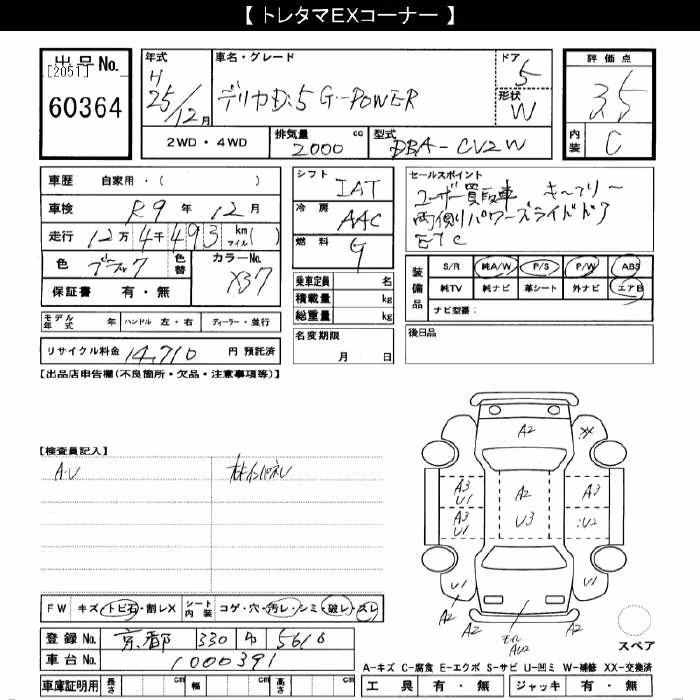 【 トレタマEXコーナー 】
出品No.
[2051]
60364
年式
H
25/12月
車名・グレード
デリカD:5 G-POWER
ドア
5
形状
W
2WD・4WD
排気量
2000
cc
型式
DBA-CV2W
評価点
3.5
内装
C
車歴 自家用・( )
車検 R9 年 12 月
走行 12万 4千 493 km マイル( )
色 ブラック 色替 カラーNo. X37
保証書 有・無
モデル年式 年 ハンドル 左・右 ディーラー・並行
リサイクル料金 14,710 円 預託済
シフト
IAT
冷房
AAC
燃料
G
乗車定員 名
積載量 kg
総重量 kg
名変期限
月 日
セールスポイント
ユーザー買取車 キーフリー
両側パワースライドドア
ETC
装備品
S/R 純A/W P/S P/W ABS
純TV 純ナビ 革シート 外ナビ エアB
ナビ型番:
後日品
【出品店申告欄(不良箇所・欠品・注意事項等)】
【検査員記入】
A・U
FW キズ・トビ石・割レX シート内装 コゲ・穴・汚レ・シミ・破レ・スレ
登録No. 京都 330 5610
車台No. 1000391
車庫証明用 長さ cm 幅 cm 高さ cm
A2
A3
U1
A2
A3
A3
U1
U3
U2
U1
U1
A2
A2
A2
スペア
A-キズ C-腐食 E-エクボ S-サビ U-凹ミ W-補修 XX-交換済
工具 有・無 ジャッキ 有・無